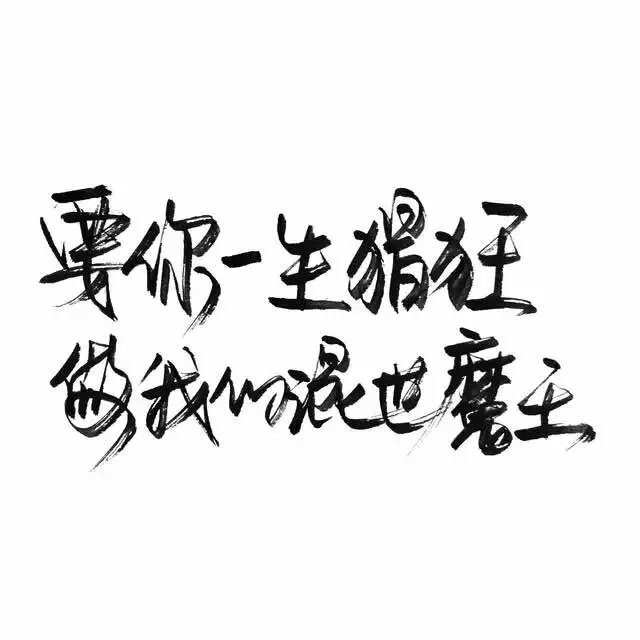 要你一生猖狂
做我的混世魔王